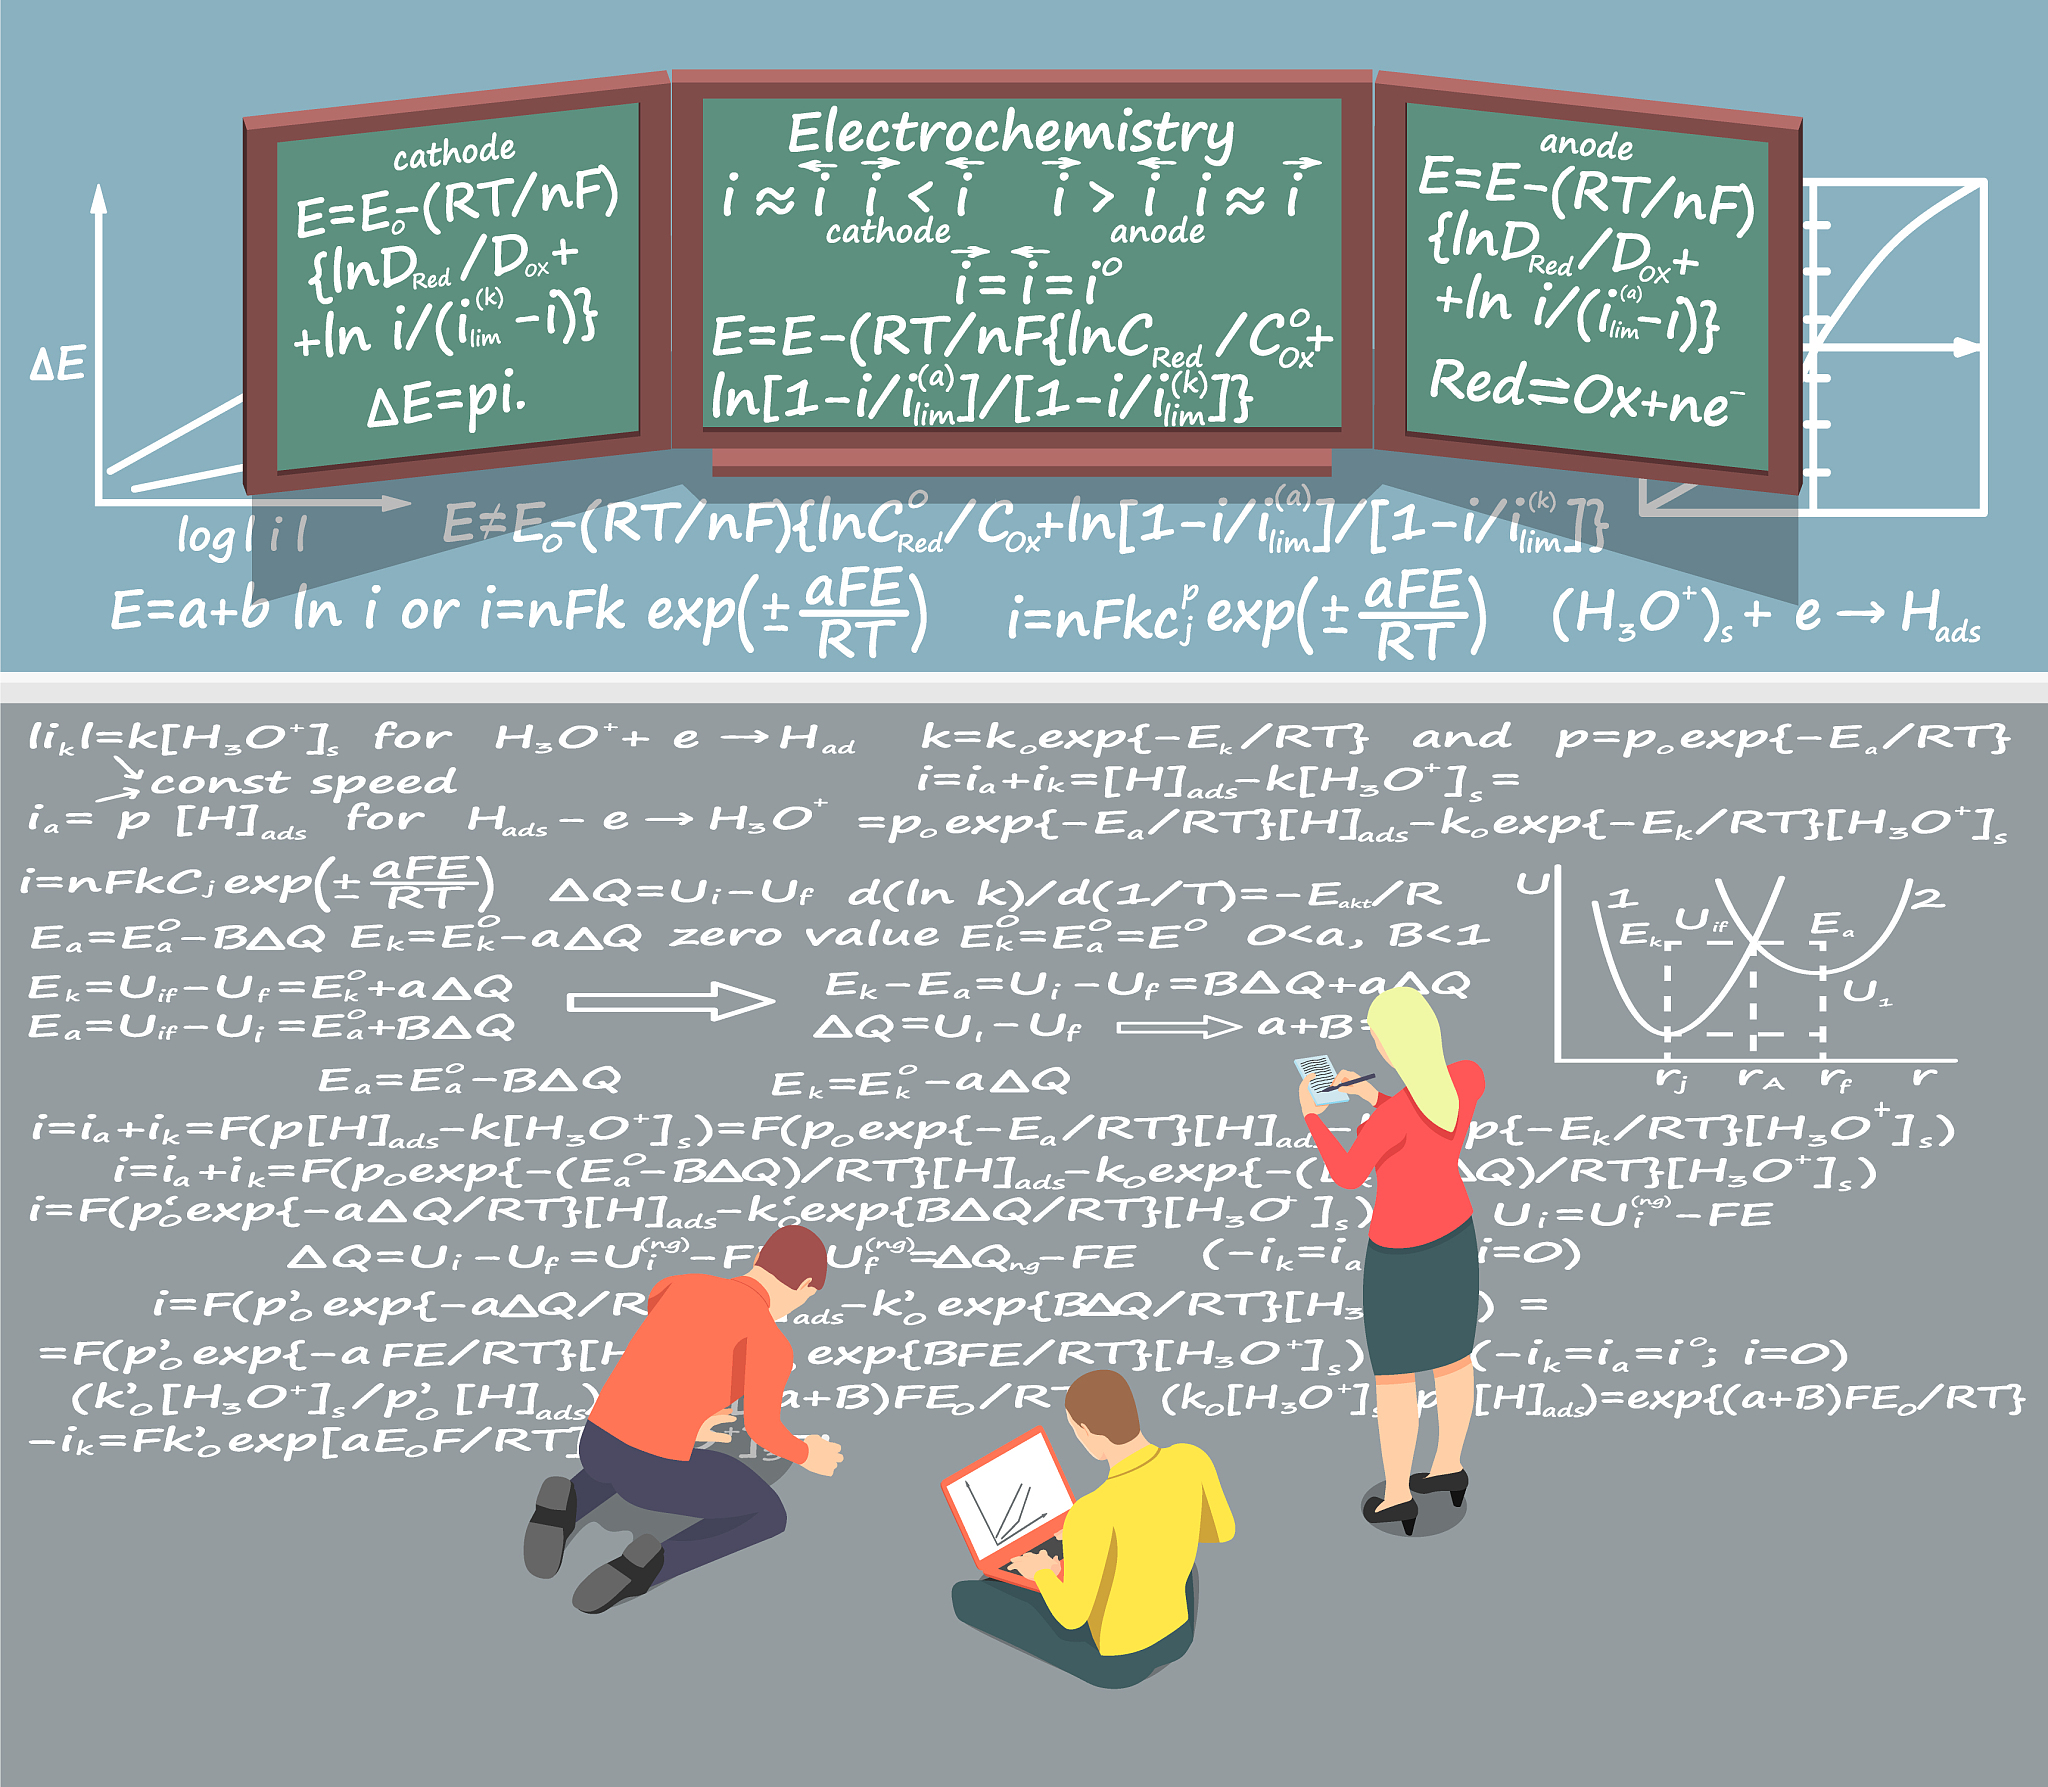 cathode
E=E₀-(RT/nF)
{lnD_Red/D_ox+
+ln i/(i_lim^(k)-i)}
ΔE=pi.
Electrochemistry
i≈i⃖ i⃗<i⃖ i⃗>i⃖ i≈i⃗
cathode anode
i⃗=i⃖=i⁰
E=E-(RT/nF{lnC_Red/C⁰_Ox+
ln[1-i/i_lim^(a)]/[1-i/i_lim^(k)]}
anode
E=E-(RT/nF)
{lnD_Red/D_ox+
+ln i/(i_lim^(a)-i)}
Red⇌Ox+ne⁻
ΔE
log|i|
E≠E₀-(RT/nF){lnC⁰_Red/C_Ox+ln[1-i/i_lim^(a)]/[1-i/i_lim^(k)]}
E=a+b ln i or i=nFk exp(±aFE/RT) i=nFkc_j^p exp(±aFE/RT) (H₃O⁺)_s + e → H_ads
|i_k|=k[H₃O⁺]_s for H₃O⁺+ e → H_ad k=k₀exp{-E_k/RT} and p=p₀exp{-E_a/RT}
const speed i=i_a+i_k=[H]_ads-k[H₃O⁺]_s=
i_a= p [H]_ads for H_ads- e → H₃O⁺ =p₀exp{-E_a/RT}[H]_ads-k₀exp{-E_k/RT}[H₃O⁺]_s
i=nFkC_j exp(±aFE/RT) ΔQ=U_i-U_f d(ln k)/d(1/T)=-E_akt/R
E_a=E_a⁰-BΔQ E_k=E_k⁰-aΔQ zero value E_k⁰=E_a⁰=E⁰ 0<a, B<1
E_k=U_if-U_f=E_k⁰+aΔQ E_k-E_a=U_i-U_f=BΔQ+aΔQ
E_a=U_if-U_i=E_a⁰+BΔQ ΔQ=U_i-U_f → a+B=
U 1 2
E_k U_if E_a
U₁
r_j r_A r_f r
E_a=E_a⁰-BΔQ E_k=E_k⁰-aΔQ
i=i_a+i_k=F(p[H]_ads-k[H₃O⁺]_s)=F(p₀exp{-E_a/RT}[H]_ads- p{-E_k/RT}[H₃O⁺]_s)
i=i_a+i_k=F(p₀exp{-(E_a⁰-BΔQ)/RT}[H]_ads-k₀exp{-( ΔQ)/RT}[H₃O⁺]_s)
i=F(p₀‘exp{-aΔQ/RT}[H]_ads-k₀‘exp{BΔQ/RT}[H₃O⁺]_s) U_i=U_i^(ng)-FE
ΔQ=U_i-U_f=U_i^(ng)-F U_f^(ng)=ΔQ_ng-FE (-i_k=i_a i=0)
i=F(p’₀exp{-aΔQ/R ]_ads-k’₀exp{BΔQ/RT}[H₃ ) =
=F(p’₀exp{-aFE/RT}[H exp{BFE/RT}[H₃O⁺]_s) (-i_k=i_a=i⁰; i=0)
(k’₀[H₃O⁺]_s/p’₀ [H]_ads) a+B)FE₀/RT (k₀[H₃O⁺]_s p [H]_ads)=exp{(a+B)FE₀/RT}
-i_k=Fk’₀exp[aE₀F/RT]